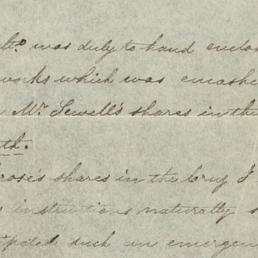 was duly to hand enclo
works which was encashe
Mr Sewell's shares in the
th.
rose's shares in the Coy I
instructions naturally s
ipated such an emergen